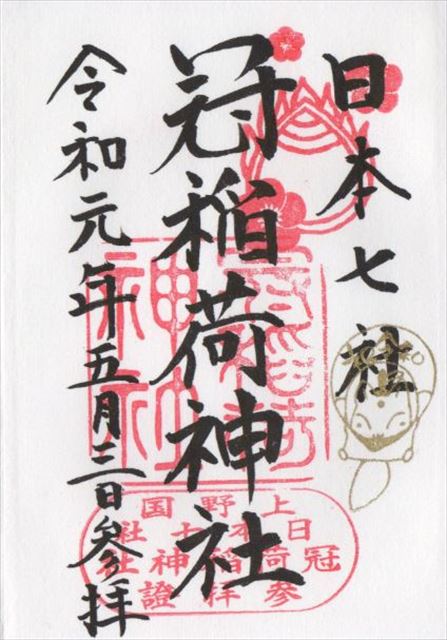 日本七社
冠稲荷神社
令和元年五月三日参拝
上野国
日本七社
冠稲荷神社
参拝證